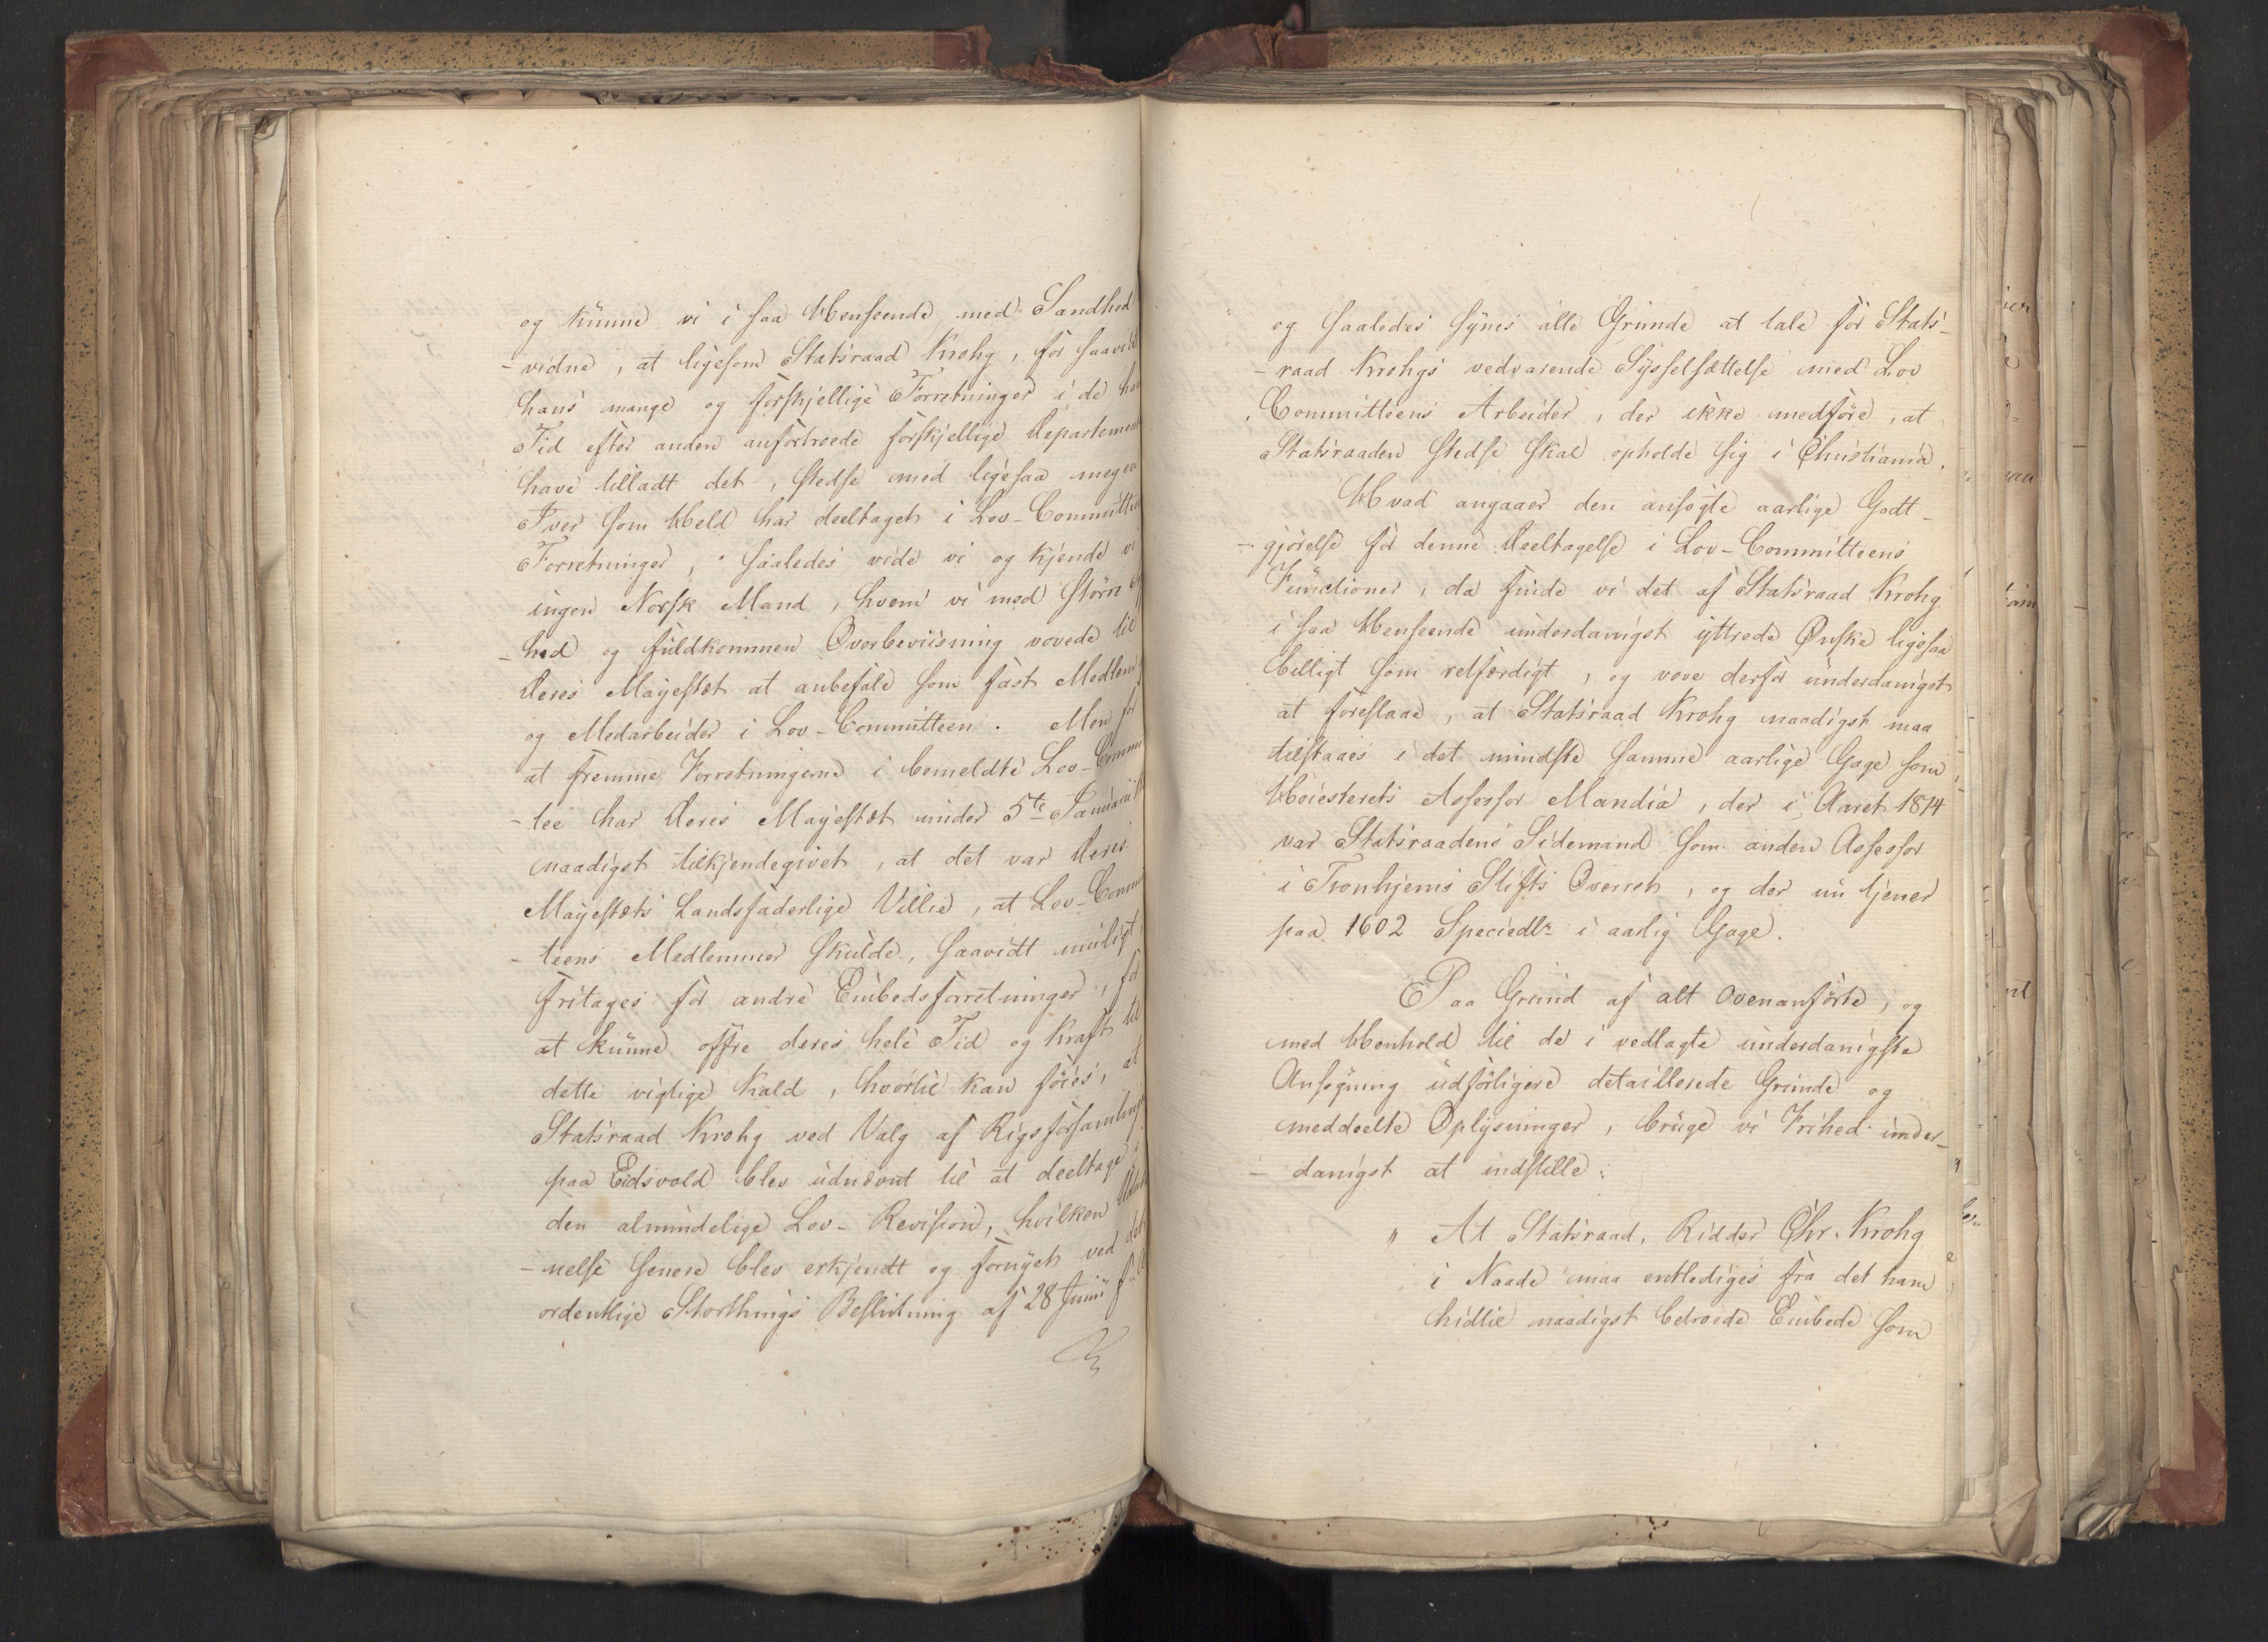 og kunne vi i saa Henseende med Sandhed
- vidne, at ligesom Statsraad Krohg, for saavidt
hans mange og forskjellige Forretninger i de ham
Tid efter anden anfortroede forskjellige Departementer
have tilladt det, stedse med ligesaa megen
Iver som Held har deeltaget i Lov-Committeens
Forretninger, saaledes vide vi og kjende vi
ingen Norsk Mand, hvem vi med större
- hed og fuldkommen Overbeviisning vovede til
Deres Majestæt at anbefale som fast Medlem
og Medarbeider i Lov-Committeen. Men for
at fremme Forretningerne i bemeldte Lov-Commit
- tee har Deres Majestæt under 5te Januarii
naadigst tilkjendegivet, at det var Deres
Majestæts Landsfaderlige Villie, at Lov-Commit
- teens Medlemmer skulde, saavidt muligt,
fritages for andre Embedsforretninger, for
at kunne offre deres hele Tid og Kraft til
dette vigtige Kald, hvortil kan föies, at
Statsraad Krohg ved Valg af Rigsforsamlingen
paa Eidsvold blev udnævnt til at deeltage i
den almindelige Lov-Revision, hvilken Udnæv
- nelse senere blev erkjendt og fornyet ved det
ordentlige Storthings Beslutning af 28 Junii
og saaledes synes alle Grunde at tale for Stats-
- raad Krohgs vedvarende Sysselsættelse med Lov
Committeens Arbeider, der ikke medföre, at
Statsraaden stedse skal opholde sig i Christiania.
Hvad angaaer den ansögte aarlige Godt-
- gjörelse for denne Deeltagelse i Lov-Committeens
Functioner, da finde vi det af Statsraad Krohg
i saa Henseende underdanigst yttrede Önske ligesaa
billigt som retfærdigt, og vove derfor underdanigst
at foreslaae, at Statsraad Krohg naadigst maa
tilstaaes i det mindste samme aarlige Gage som
Höiesterets Assessor Mandix, der i Aaret 1814
var Statsraadens Sidemand som anden Assessor
i Tronhjems Stifts Overret, og der nu tjener
paa 1602 Speciedlr i aarlig Gage.
Paa Grund af alt Ovenanförte, og
med Henhold til de i vedlagte underdanigste
Ansögning udförligere detaillerede Grunde og
meddeelte Oplysninger, bruge vi Frihed under-
- danigst at indstille:
" At Statsraad, Ridder Chr. Krohg
i Naade maa entlediges fra det ham
hidtil naadigst betroede Embede som